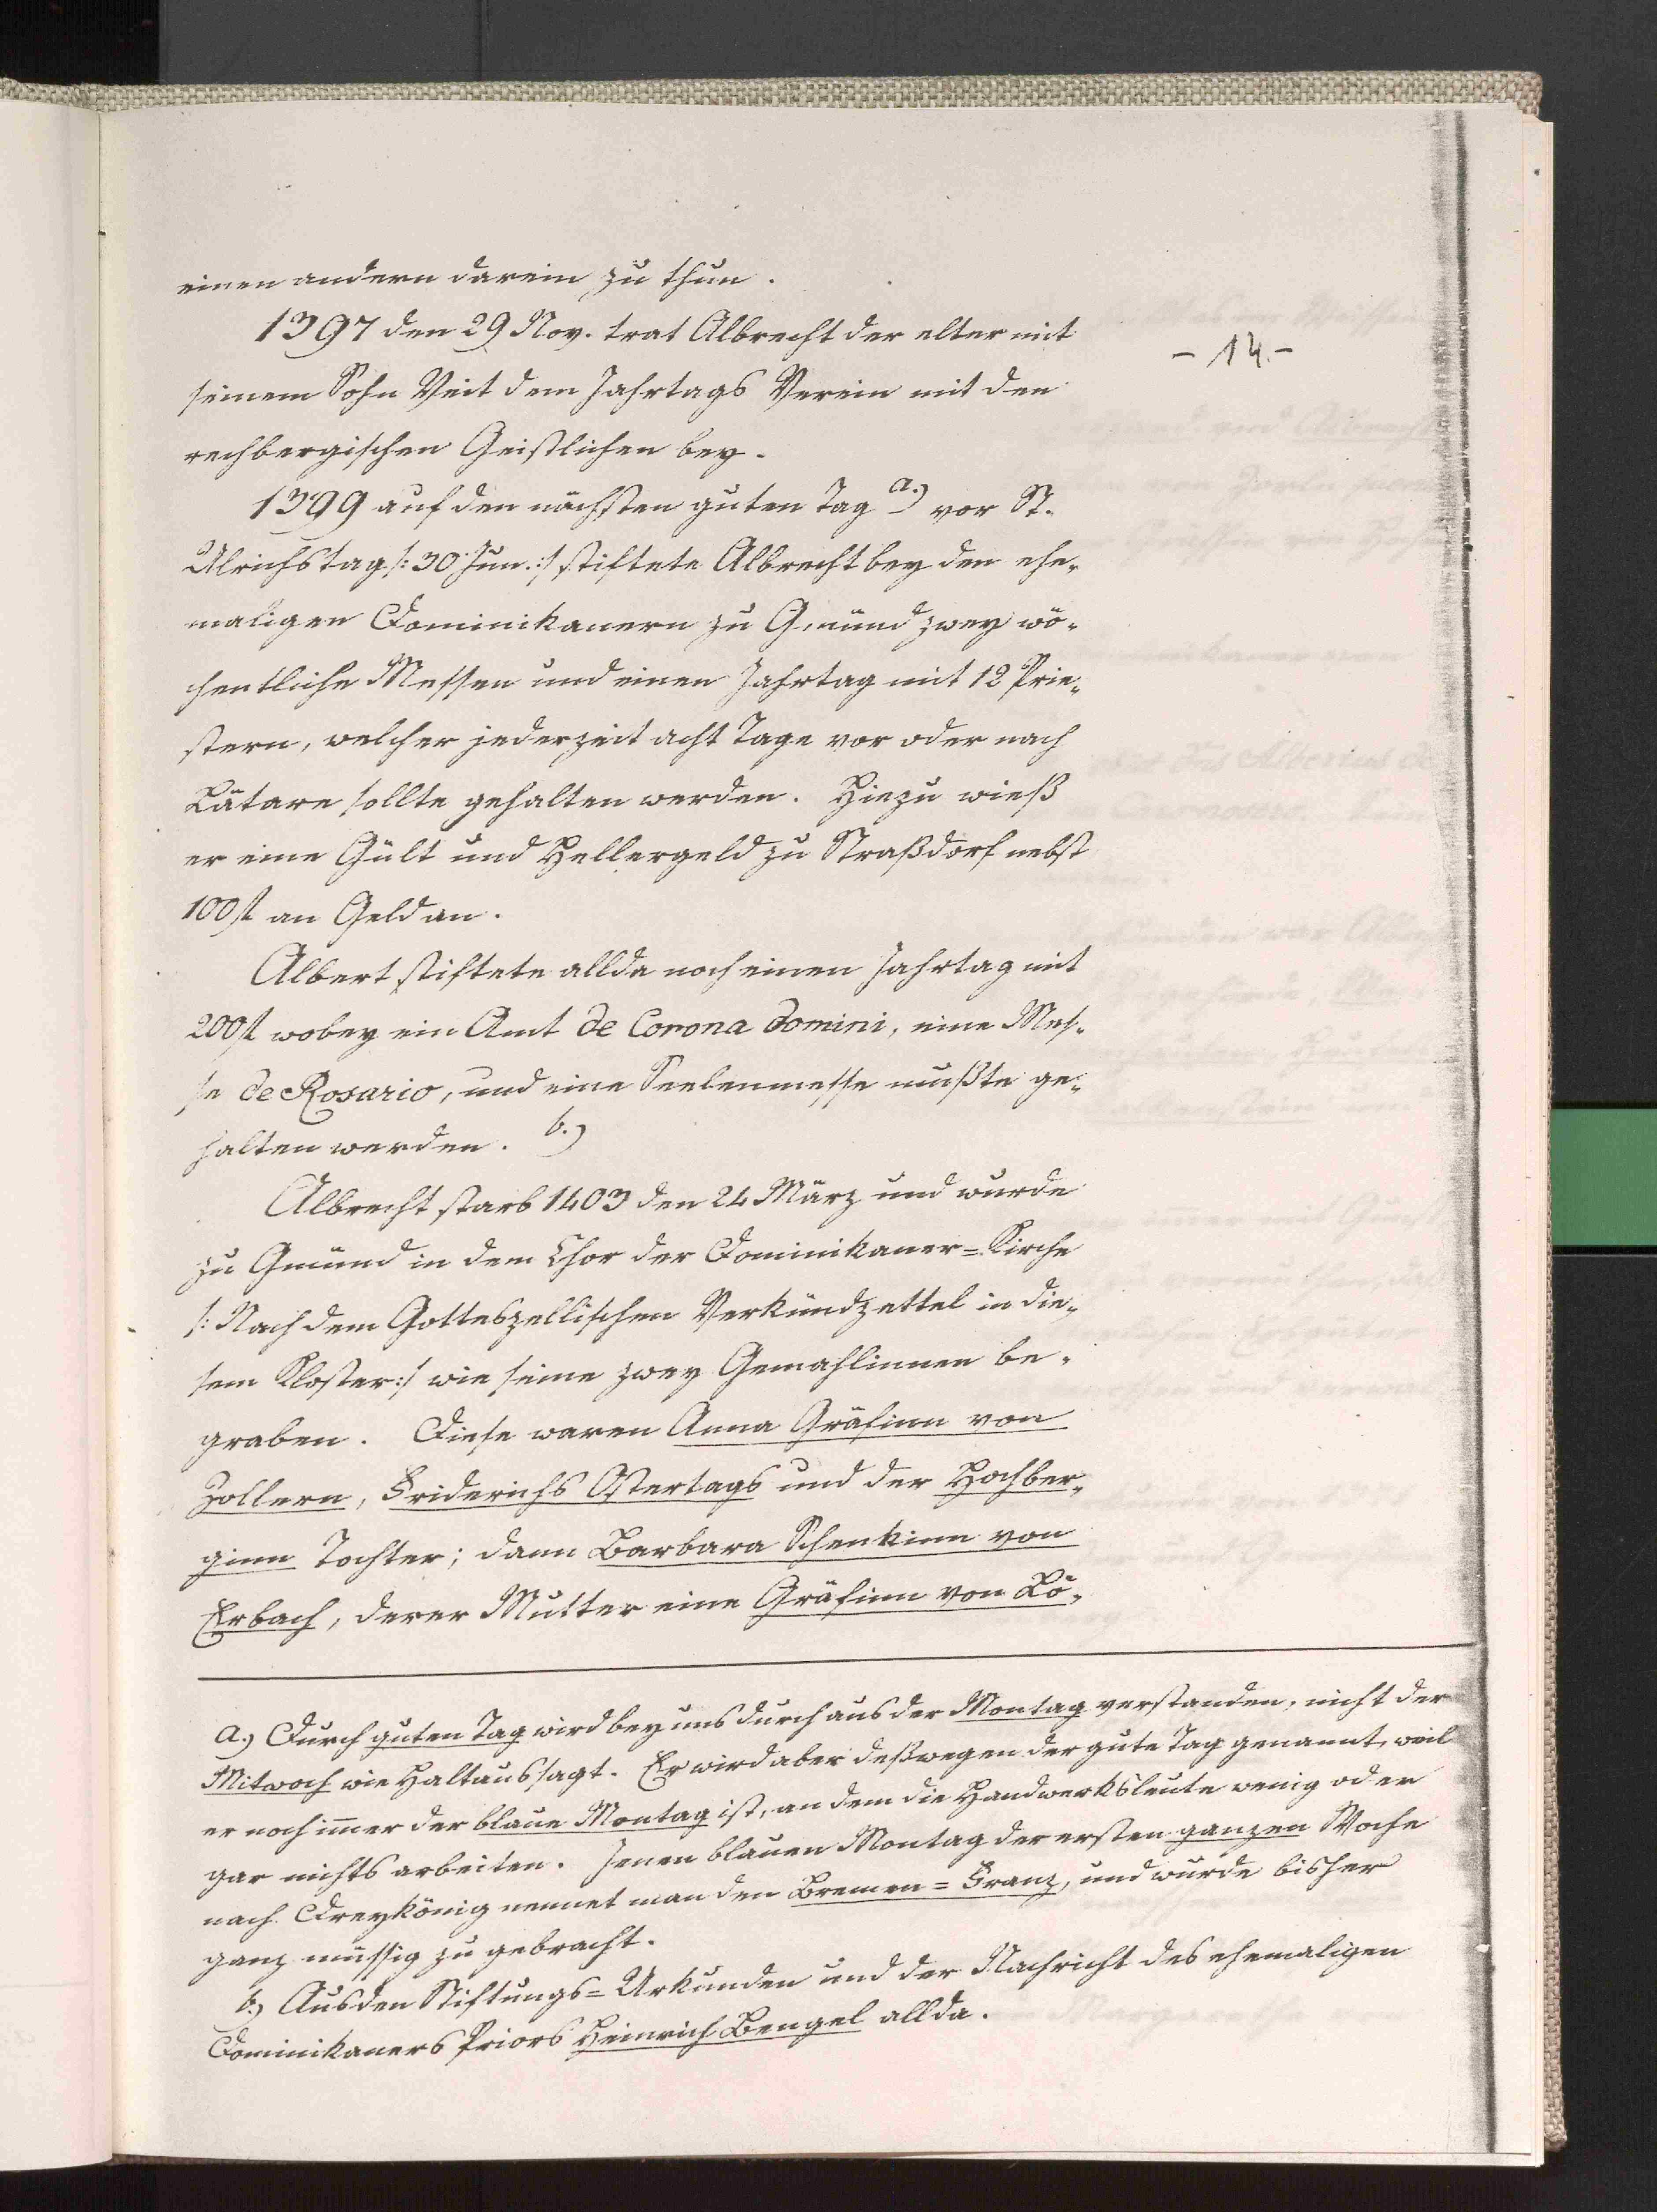 einen andern darein zu thun.
1397 den 29 Nov. trat Albrecht der elter mit
- 14. -
seinem Sohn Veit dem Jahrtags Verein mit den
rechbergischen Geistlichen bey.
1399 auf den nächsten guten Tag a.) vor St.
Ulrichstag /: 30 Jun. :/ stiftete Albrecht bey den ehe-
maligen Dominikanern zu Gmünd zwey wö-
chentliche Messen und einen Jahrtag mit 12 Prie-
stern, welcher jederzeit acht Tage vor oder nach
Lätare sollte gehalten werden. Hiezu wieß
er eine Gült und Hellergeld zu Straßdorf nebst
100 fl an Geld an.
Albert stiftete allda noch einen Jahrtag mit
200 fl wobey ein Amt de Corona Domini, eine Mes-
se de Rosario, und eine Seelenmesse mußte ge-
halten werden. b.)
Albrecht starb 1403 den 24 März und wurde
zu Gmünd in dem Chor der Dominikaner=Kirche
/: Nach dem Gotteszellischen Verkündzettel in die-
sem Kloster :/ wie seine zwey Gemahlinnen be-
graben. Diese waren Anna Gräfinn von
Zollern, Friderichs Ostertags und der Hochber-
ginn Tochter; dann Barbara Schenkinn von
Erbach, derer Mutter eine Gräfinn von Lö-
a.) Durch guten Tag wird bey uns durchaus der Montag verstanden, nicht der
Mitwoch wie Haltaus sagt. Er wird aber deßwegen der gute Tag genannt, weil
er noch immer der blaue Montag ist, an dem die Handwerksleute wenig oder
gar nichts arbeiten. Jenen blauen Montag der ersten ganzen Woche
nach Dreykönig nennet man den Bremen=Franz, und wurde bisher
ganz müssig zu gebracht.
b.) Aus den Stiftungs=Urkunden und der Nachricht des ehemaligen
Dominikaners Priors Heinrich Bengel allda.